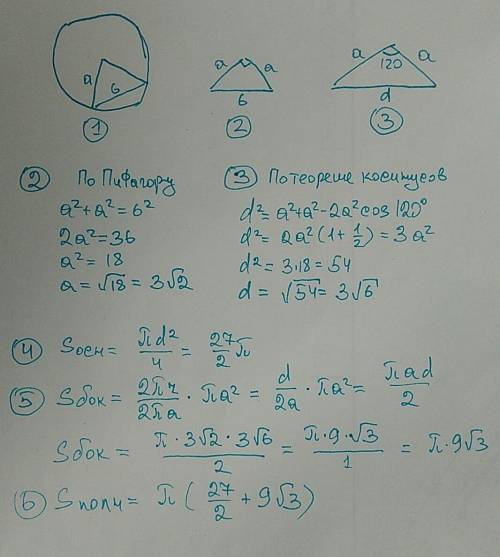 a 6
①
a a
6
②
a a
120
d
③
② По Пифагору
a²+a²=6²
2a²=36
a²=18
a=√18=3√2
③ По теореме косинусов
d²=a²+a²-2a²cos120°
d²=2a²(1+1/2)=3a²
d²=3·18=54
d=√54=3√6
④ Sосн=πd²/4=27/2π
⑤ Sбок=2πr/2πa·πa²=d/2a·πa²=πad/2
Sбок=π·3√2·3√6/2=π·9·√3/1=π·9√3
⑥ Sполн=π(27/2+9√3)